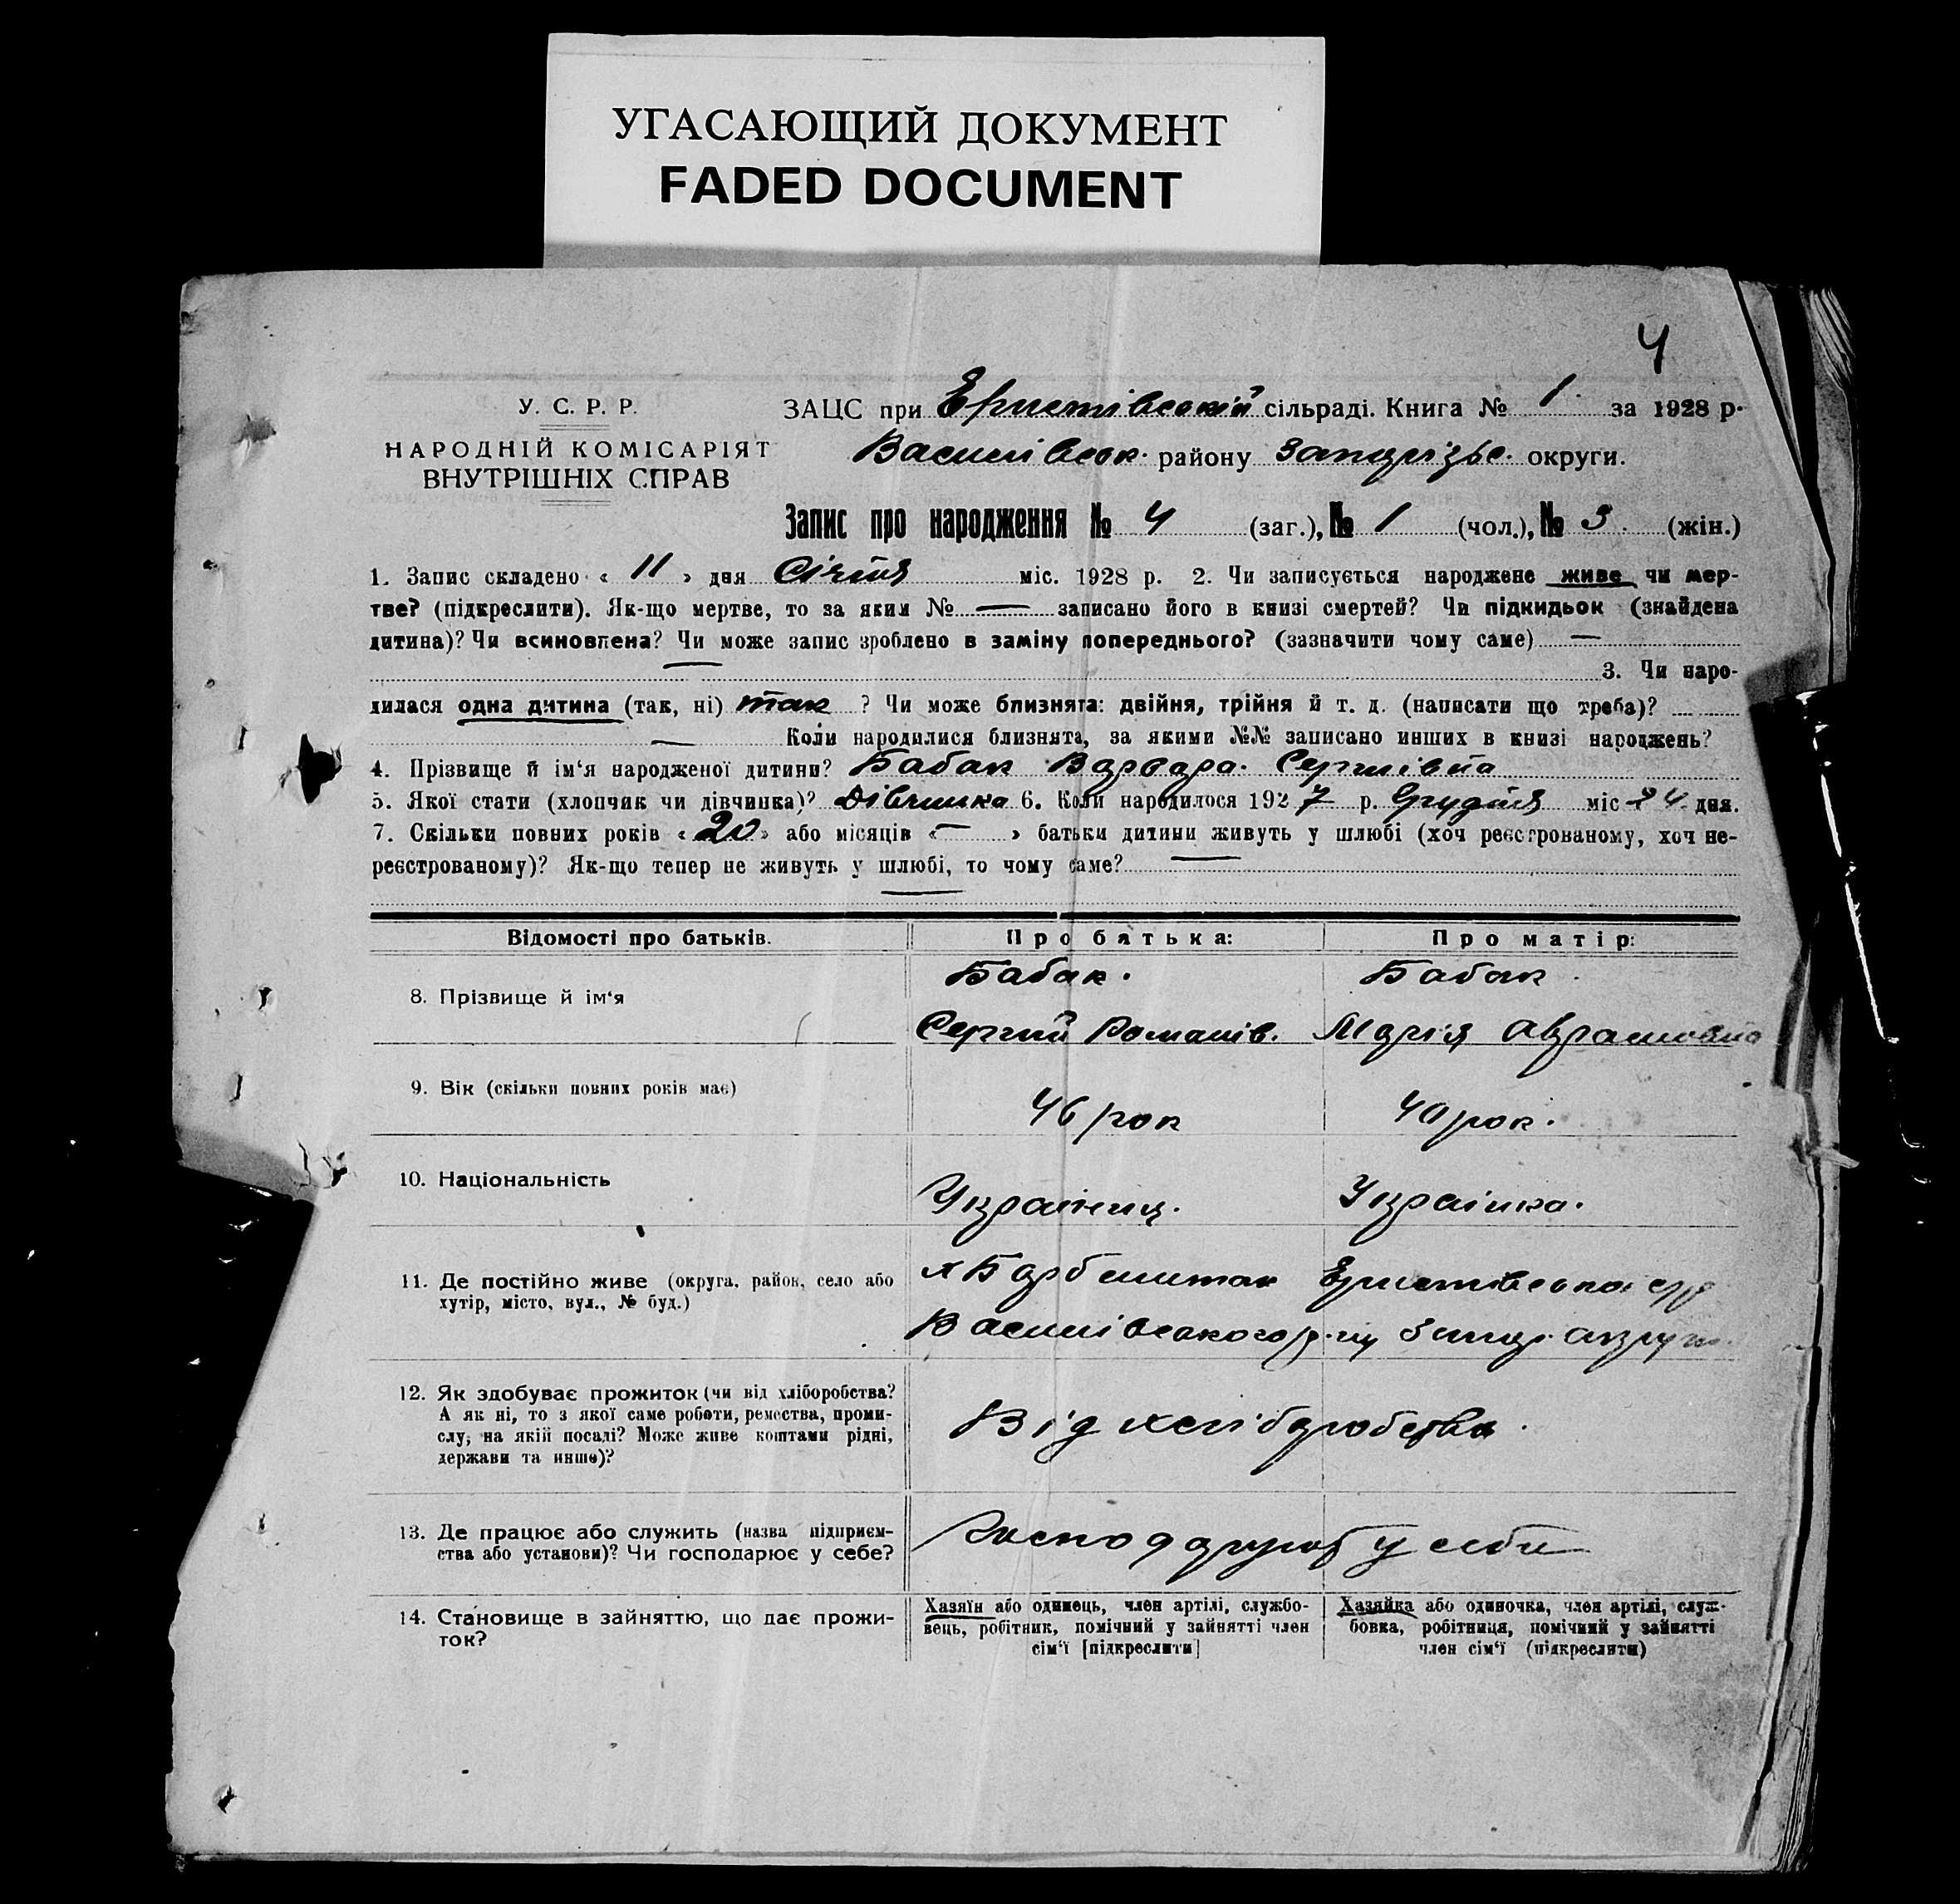 УГАСАЮЩИЙ ДОКУМЕНТ
FADED DOCUMENT
4
У. С. Р. Р.
НАРОДНІЙ КОМІСАРІЯТ
ВНУТРІШНІХ СПРАВ
ЗАЦС при Єристівській сільраді. Книга № 1. за 1928 р.
Василівськ. району Запорізьк. округи.
Запис про народження № 4 (заг.), № 1 (чол.), № 3. (жін.)
1. Запис складено « 11 » дня Січня міс. 1928 р. 2. Чи записується народжене живе чи мер-
тве? (підкреслити). Як-що мертве, то за яким № — записано його в книзі смертей? Чи підкидьок (знайдена
дитина)? Чи всиновлена? Чи може запис зроблено в заміну попереднього? (зазначити чому саме) —
— 3. Чи наро-
дилася одна дитина (так, ні) так ? Чи може близнята: двійня, трійня й т. д. (написати що треба)?
— Коли народилися близнята, за якими №№ записано инших в книзі народжень?
4. Прізвище й ім‘я народженої дитини? Бабак Варвара. Сергіівна
5. Якої стати (хлопчик чи дівчинка)? Дівчинка 6. Коли народилося 1927 р. Грудня міс 24 дня.
7. Скільки повних років « 20 » або місяців « — » батьки дитини живуть у шлюбі (хоч реєстрованому, хоч не-
реєстрованому)? Як-що тепер не живуть у шлюбі, то чому саме? —
—
Відомості про батьків. Про батька: Про матір:
8. Прізвище й ім‘я
Бабак. Бабак.
Сергій Романів. Марія Аврамовна
9. Вік (скільки повних років має)
46 рок 40 рок.
10. Національність
Українец. Українка.
11. Де постійно живе (округа, район, село або
хутір, місто, вул., № буд.)
х Єристівськоі
Василівського округи
12. Як здобуває прожиток (чи від хліборобства?
А як ні, то з якої саме роботи, ремества, проми-
слу, на якій посаді? Може живе коштами рідні,
держави та инше)?
Від хліборобства.
13. Де працює або служить (назва підприєм-
ства або установи)? Чи господарює у себе?
у себе
14. Становище в зайняттю, що дає прожи-
ток?
Хазяїн або одинець, член артілі, службо-
вець, робітник, помічний у зайнятті член
сім‘ї [підкреслити]
Хазяйка або одиночка, член артілі, служ-
бовка, робітниця, помічний у зайнятті
член сім‘ї (підкреслити)